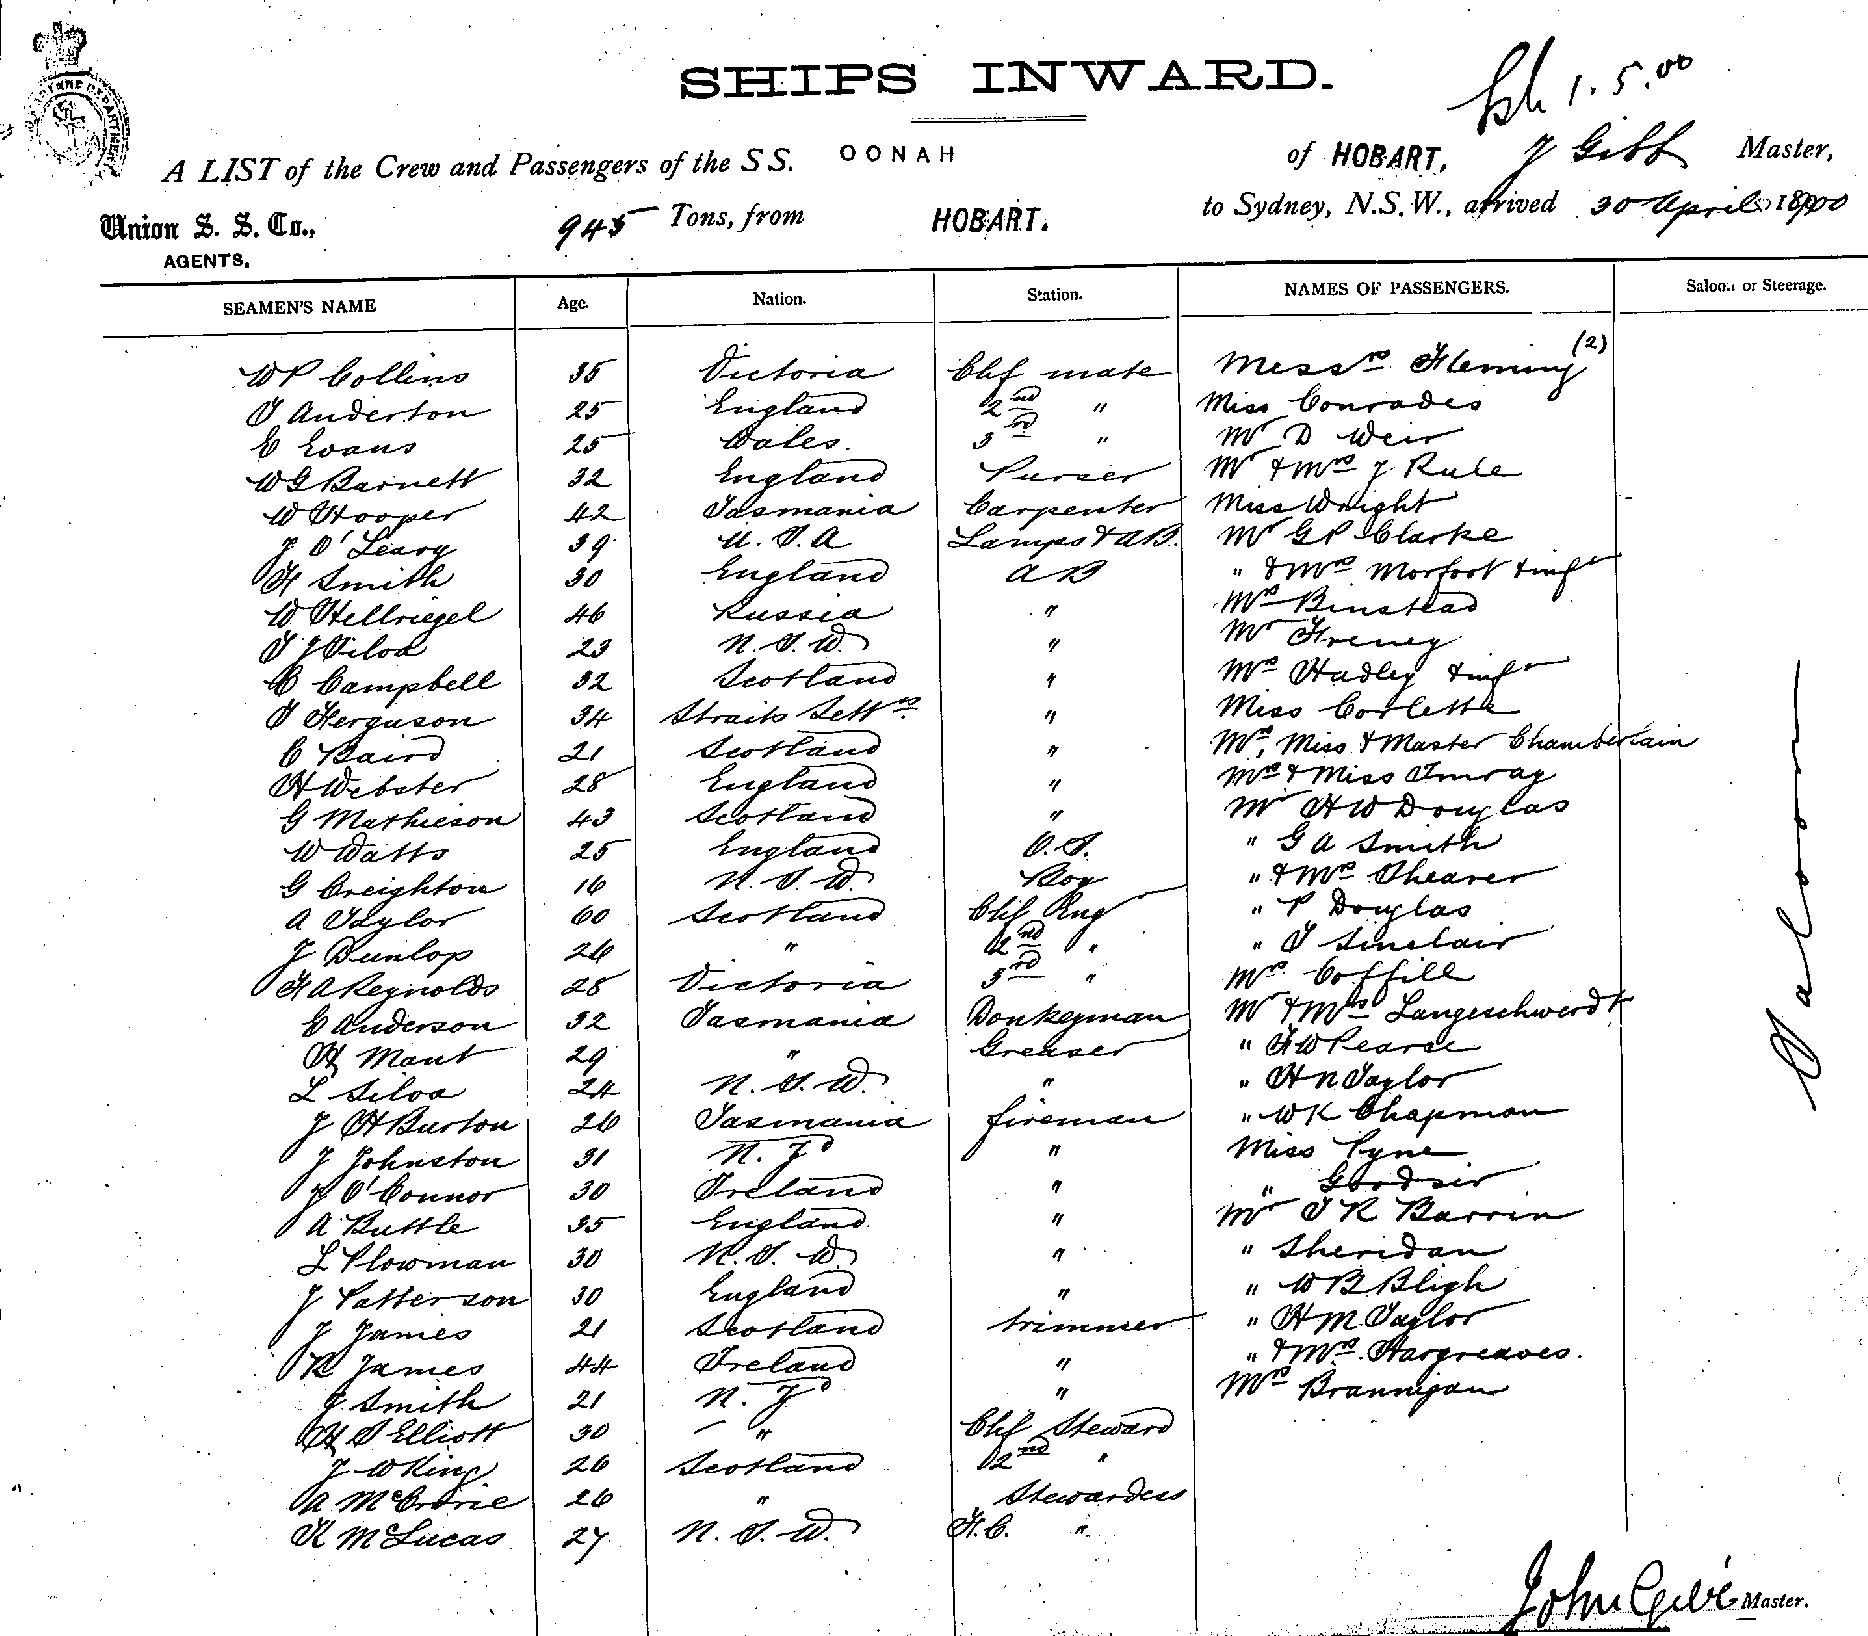 SHIPS INWARD.
1.5.00
A LIST of the Crew and Passengers of the SS. OONAH of HOBART, J Gibb Master,
Union S. S. Co., 945 Tons, from HOBART. to Sydney, N.S.W., arrived 30 April 1900
AGENTS.
SEAMEN'S NAME Age. Nation. Station. NAMES OF PASSENGERS. Saloon or Steerage.
W P Collins 35 Victoria Chf mate Messrs Fleming (2)
T Anderton 25 England 2nd " Miss Conrades
E Evans 25 Wales. 3rd " Mr D Weir
W G Barnett 32 England Purser Mr & Mrs J Rule
W Hooper 42 Tasmania Carpenter Miss Wright
J O'Leary 39 U. S. A Lamps & AB. Mr G P Clarke
H Smith 30 England A B " & Mrs Morfoot & inft
W Hellriegel 46 Russia " Mrs Binstead
T J Silva 23 N. S. W. " Mr Freney
C Campbell 32 Scotland " Mrs Hadley & inft
T Ferguson 34 Straits Settts. " Miss Corlette
C Baird 21 Scotland " Mrs, Miss & Master Chamberlain
H Webster 28 England " Mrs & Miss Imray
G Mathieson 43 Scotland " Mr H W Douglas
W Watts 25 England O. S. " G A Smith
G Creighton 16 N. S. W. Boy " & Mrs Shearer
A Taylor 60 Scotland Chf Eng " P Douglas
J Dunlop 26 " 2nd " " T Sinclair
F A Reynolds 28 Victoria 3rd " Mrs Coffill
E Anderson 32 Tasmania Donkeyman Mr & Mrs Langeschwerdt
H Mant 29 " Greaser " F W Pearce
L Silva 24 N. S. W. " " H N Taylor
J H Burton 26 Tasmania fireman " W K Chapman
J Johnston 31 N. Zd " Miss Pyne
J O'Connor 30 Ireland " " Goodsir
A Buttle 35 England " Mr T R Barrin
L Plowman 30 N. S. W. " " Sheridan
J Patterson 30 England " " W B Bligh
J James 21 Scotland trimmer " H M Taylor
R James 44 Ireland " " & Mrs Hargreaves.
J Smith 21 N. Zd " Mrs Brannigan
H S Elliott 30 " Chf Steward
J W King 26 Scotland 2nd "
A McCrorie 26 " Stewardess
K McLucas 27 N. S. W. F. C. "
Saloon
John Gibb Master.